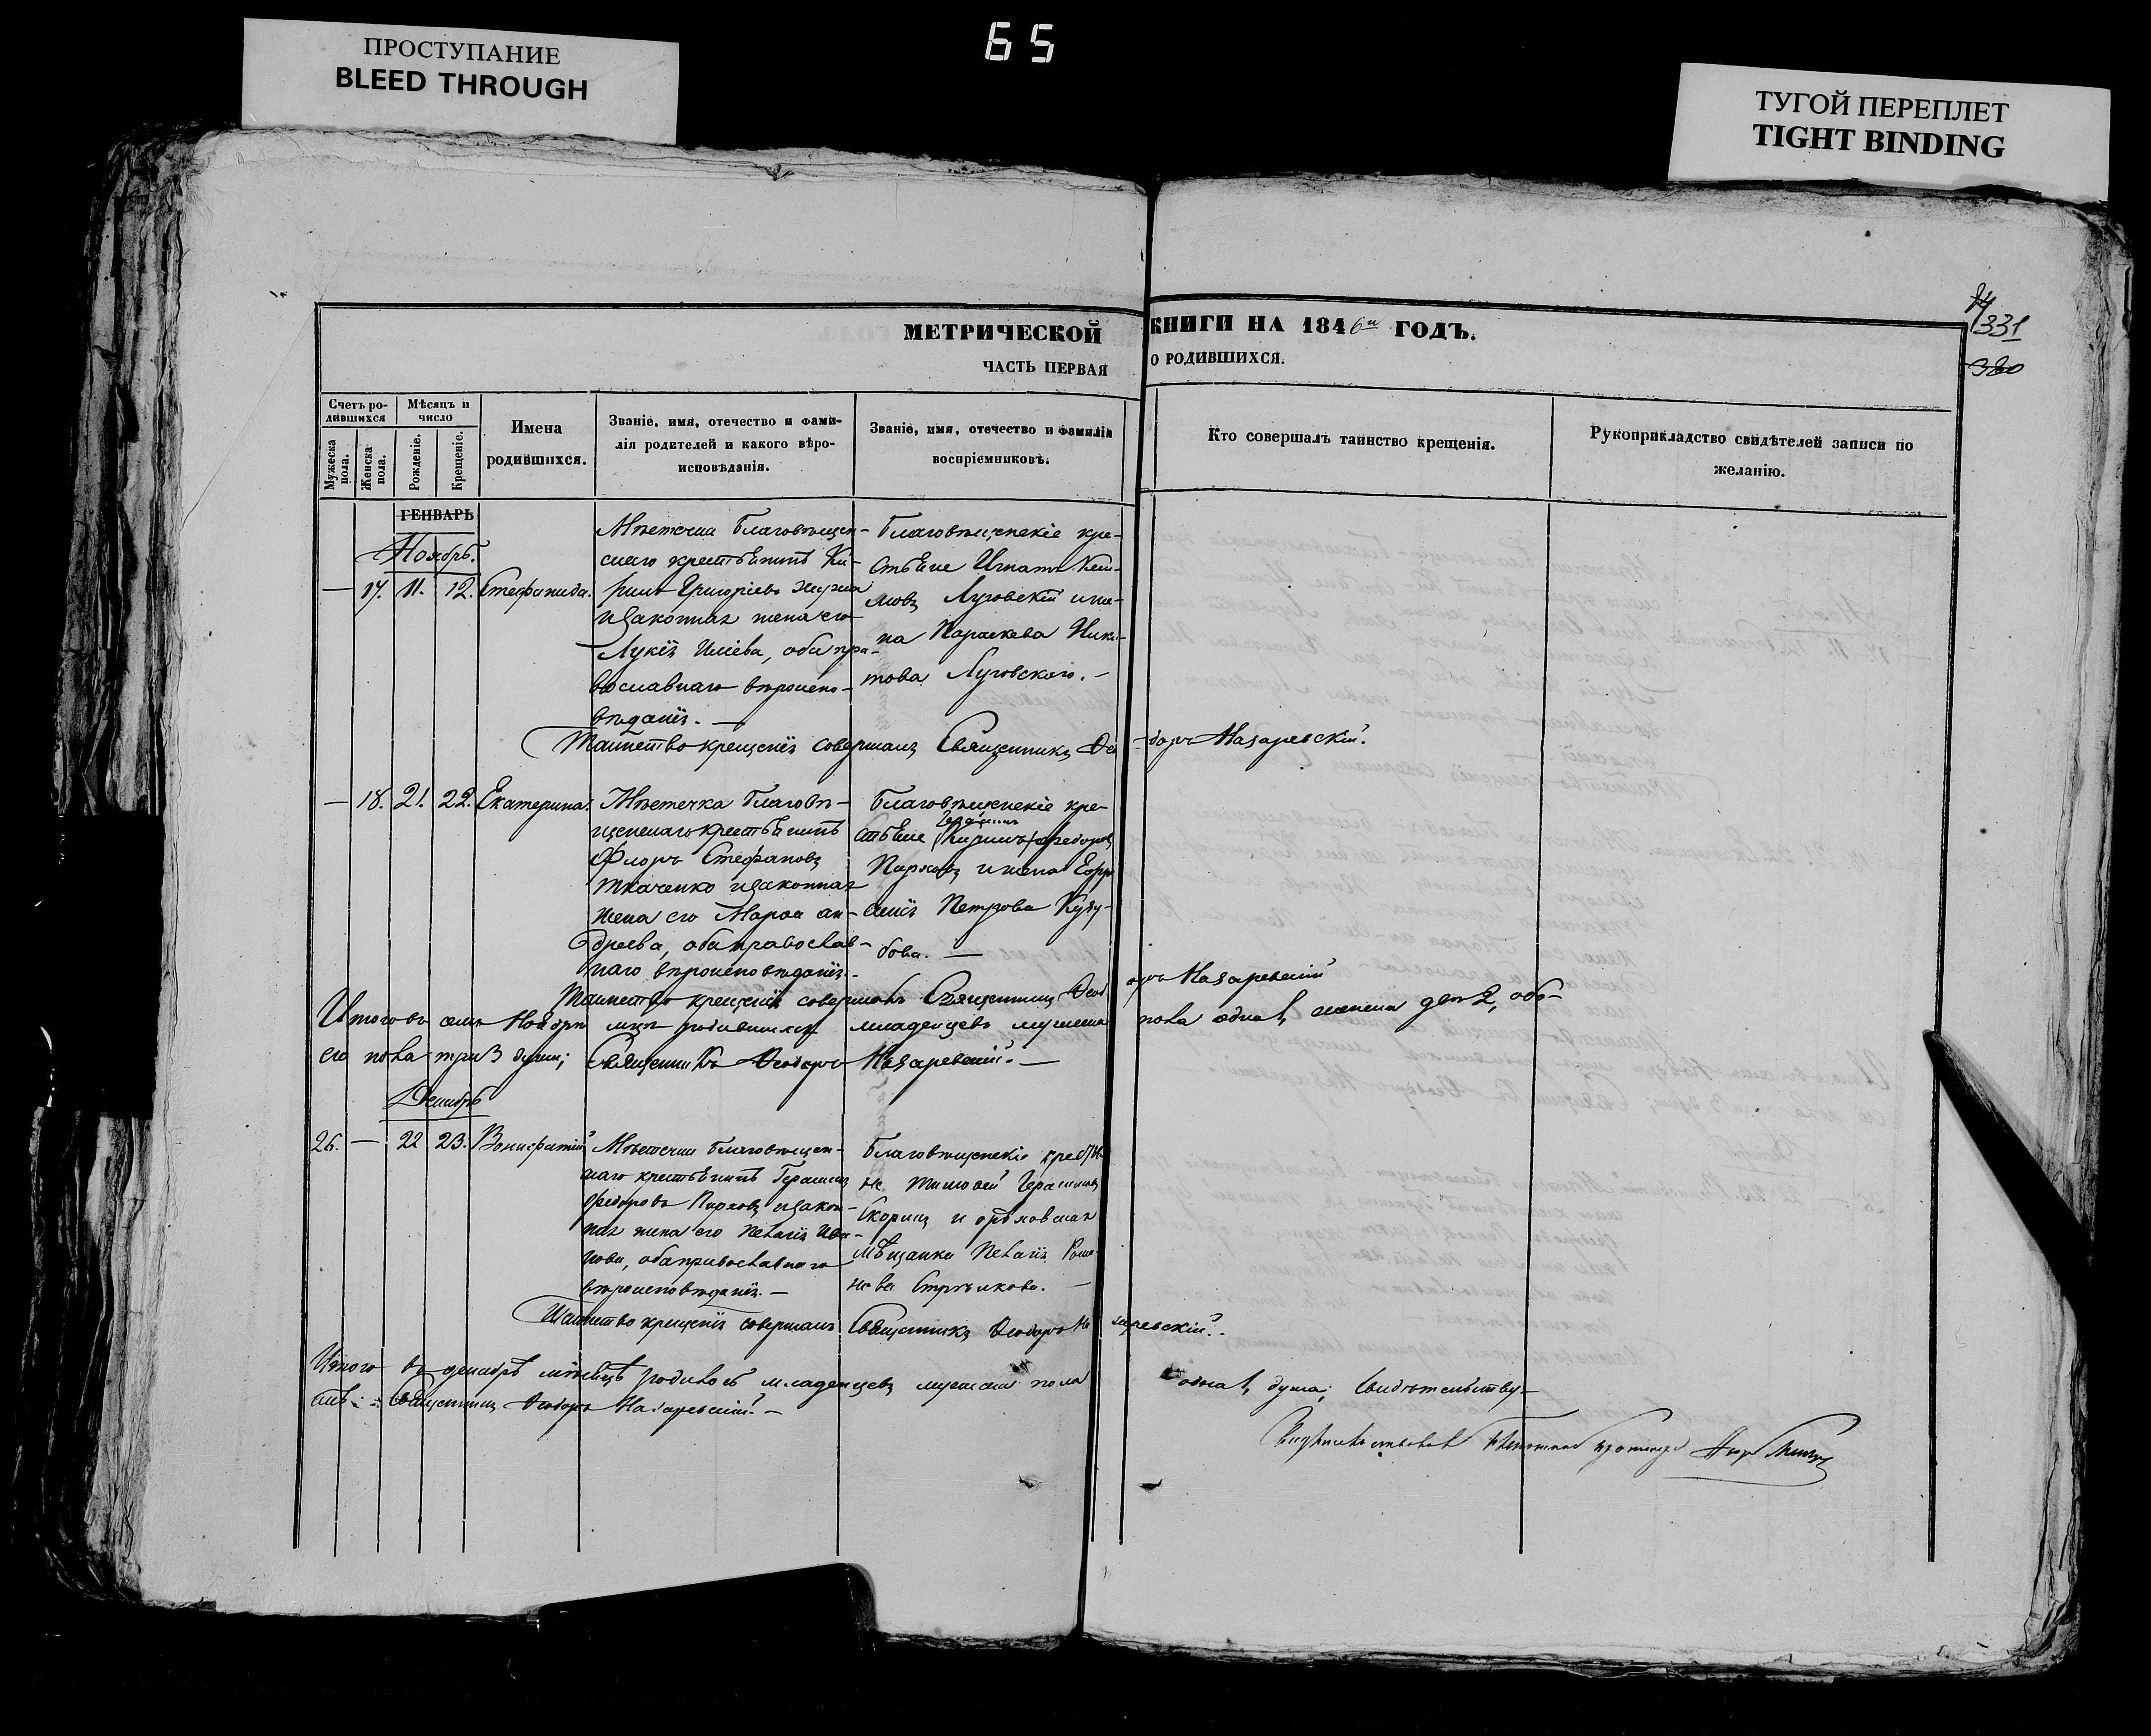 65
ПРОСТУПАНИЕ
BLEED THROUGH
ТУГОЙ ПЕРЕПЛЕТ
TIGHT BINDING
331
380
МЕТРИЧЕСКОЙ КНИГИ НА 1846й ГОДЪ.
ЧАСТЬ ПЕРВАЯ О РОДИВШИХСЯ.
Счетъ ро-
дившихся
Мужеска пола.
Женска пола.
Мѣсяцъ и
число
Рожденіе.
Крещеніе.
Имена
родившихся.
Званіе, имя, отечество и фами-
лія родителей и какого вѣро-
исповѣданія.
Званіе, имя, отечество и фамиліи
воспріемниковъ.
Кто совершалъ таинство крещенія.
Рукоприкладство свидѣтелей записи по
желанію.
ГЕНВАРЬ
Ноябрь.
— 17. 11. 12. Стефанида.
Мѣстечка Благовѣщен-
скаго крестьянинъ Ки-
рилъ Григоріевъ
и законная жена его
Лукія Иліева, оба пра-
вославнаго вѣроиспо-
вѣданія. —
Благовѣщенскіе кре-
стьяне Игнатъ
Луговскій и же-
на Параскева Ники-
това Луговскаго. —
Таинство крещенія совершалъ Священникъ Ѳео-доръ Назаревскій.
— 18. 21. 22. Екатерина.
Мѣстечка Благовѣ-
щенскаго крестьянинъ
Флоръ Стефановъ
Ткаченко и законная
жена его Марѳа Ан-
дреева, оба православ-
наго вѣроисповѣданія.
Благовѣщенскіе кре-
Герасимъ
стьяне (Кирилъ) Ѳедоровъ
Парховъ и жена Евфи-
мія Петрова
бова. —
Таинство крещенія совершалъ Священникъ Ѳеодоръ Назаревскій
Итого въ семъ Ноябрѣ мцѣ родившихся младенцевъ мужеска пола одна 1, женска двѣ 2, обо-
его пола три 3 души; Священникъ Ѳеодоръ Назаревскій. —
Декабрь
26. — 22 23. Вонифатій
Мѣстечка Благовѣщен-
скаго крестьянинъ Герасимъ
Ѳедоровъ Парховъ и закон-
ная жена его Пелагія Ива-
нова, оба православнаго
вѣроисповѣданія. —
Благовѣщенскіе крестья-
не Тимоѳей Герасимовъ
Скорикъ и орѣховская
мѣщанка Пелагія Рома-
нова Стрѣлкова. —
Таинство крещенія совершалъ Священникъ Ѳеодоръ Назаревскій.
Итого въ декабрѣ мѣсяцѣ родилось младенцевъ мужеска пола одна 1, душа; Свидѣтельству-
Священникъ Ѳеодоръ Назаревскій. —